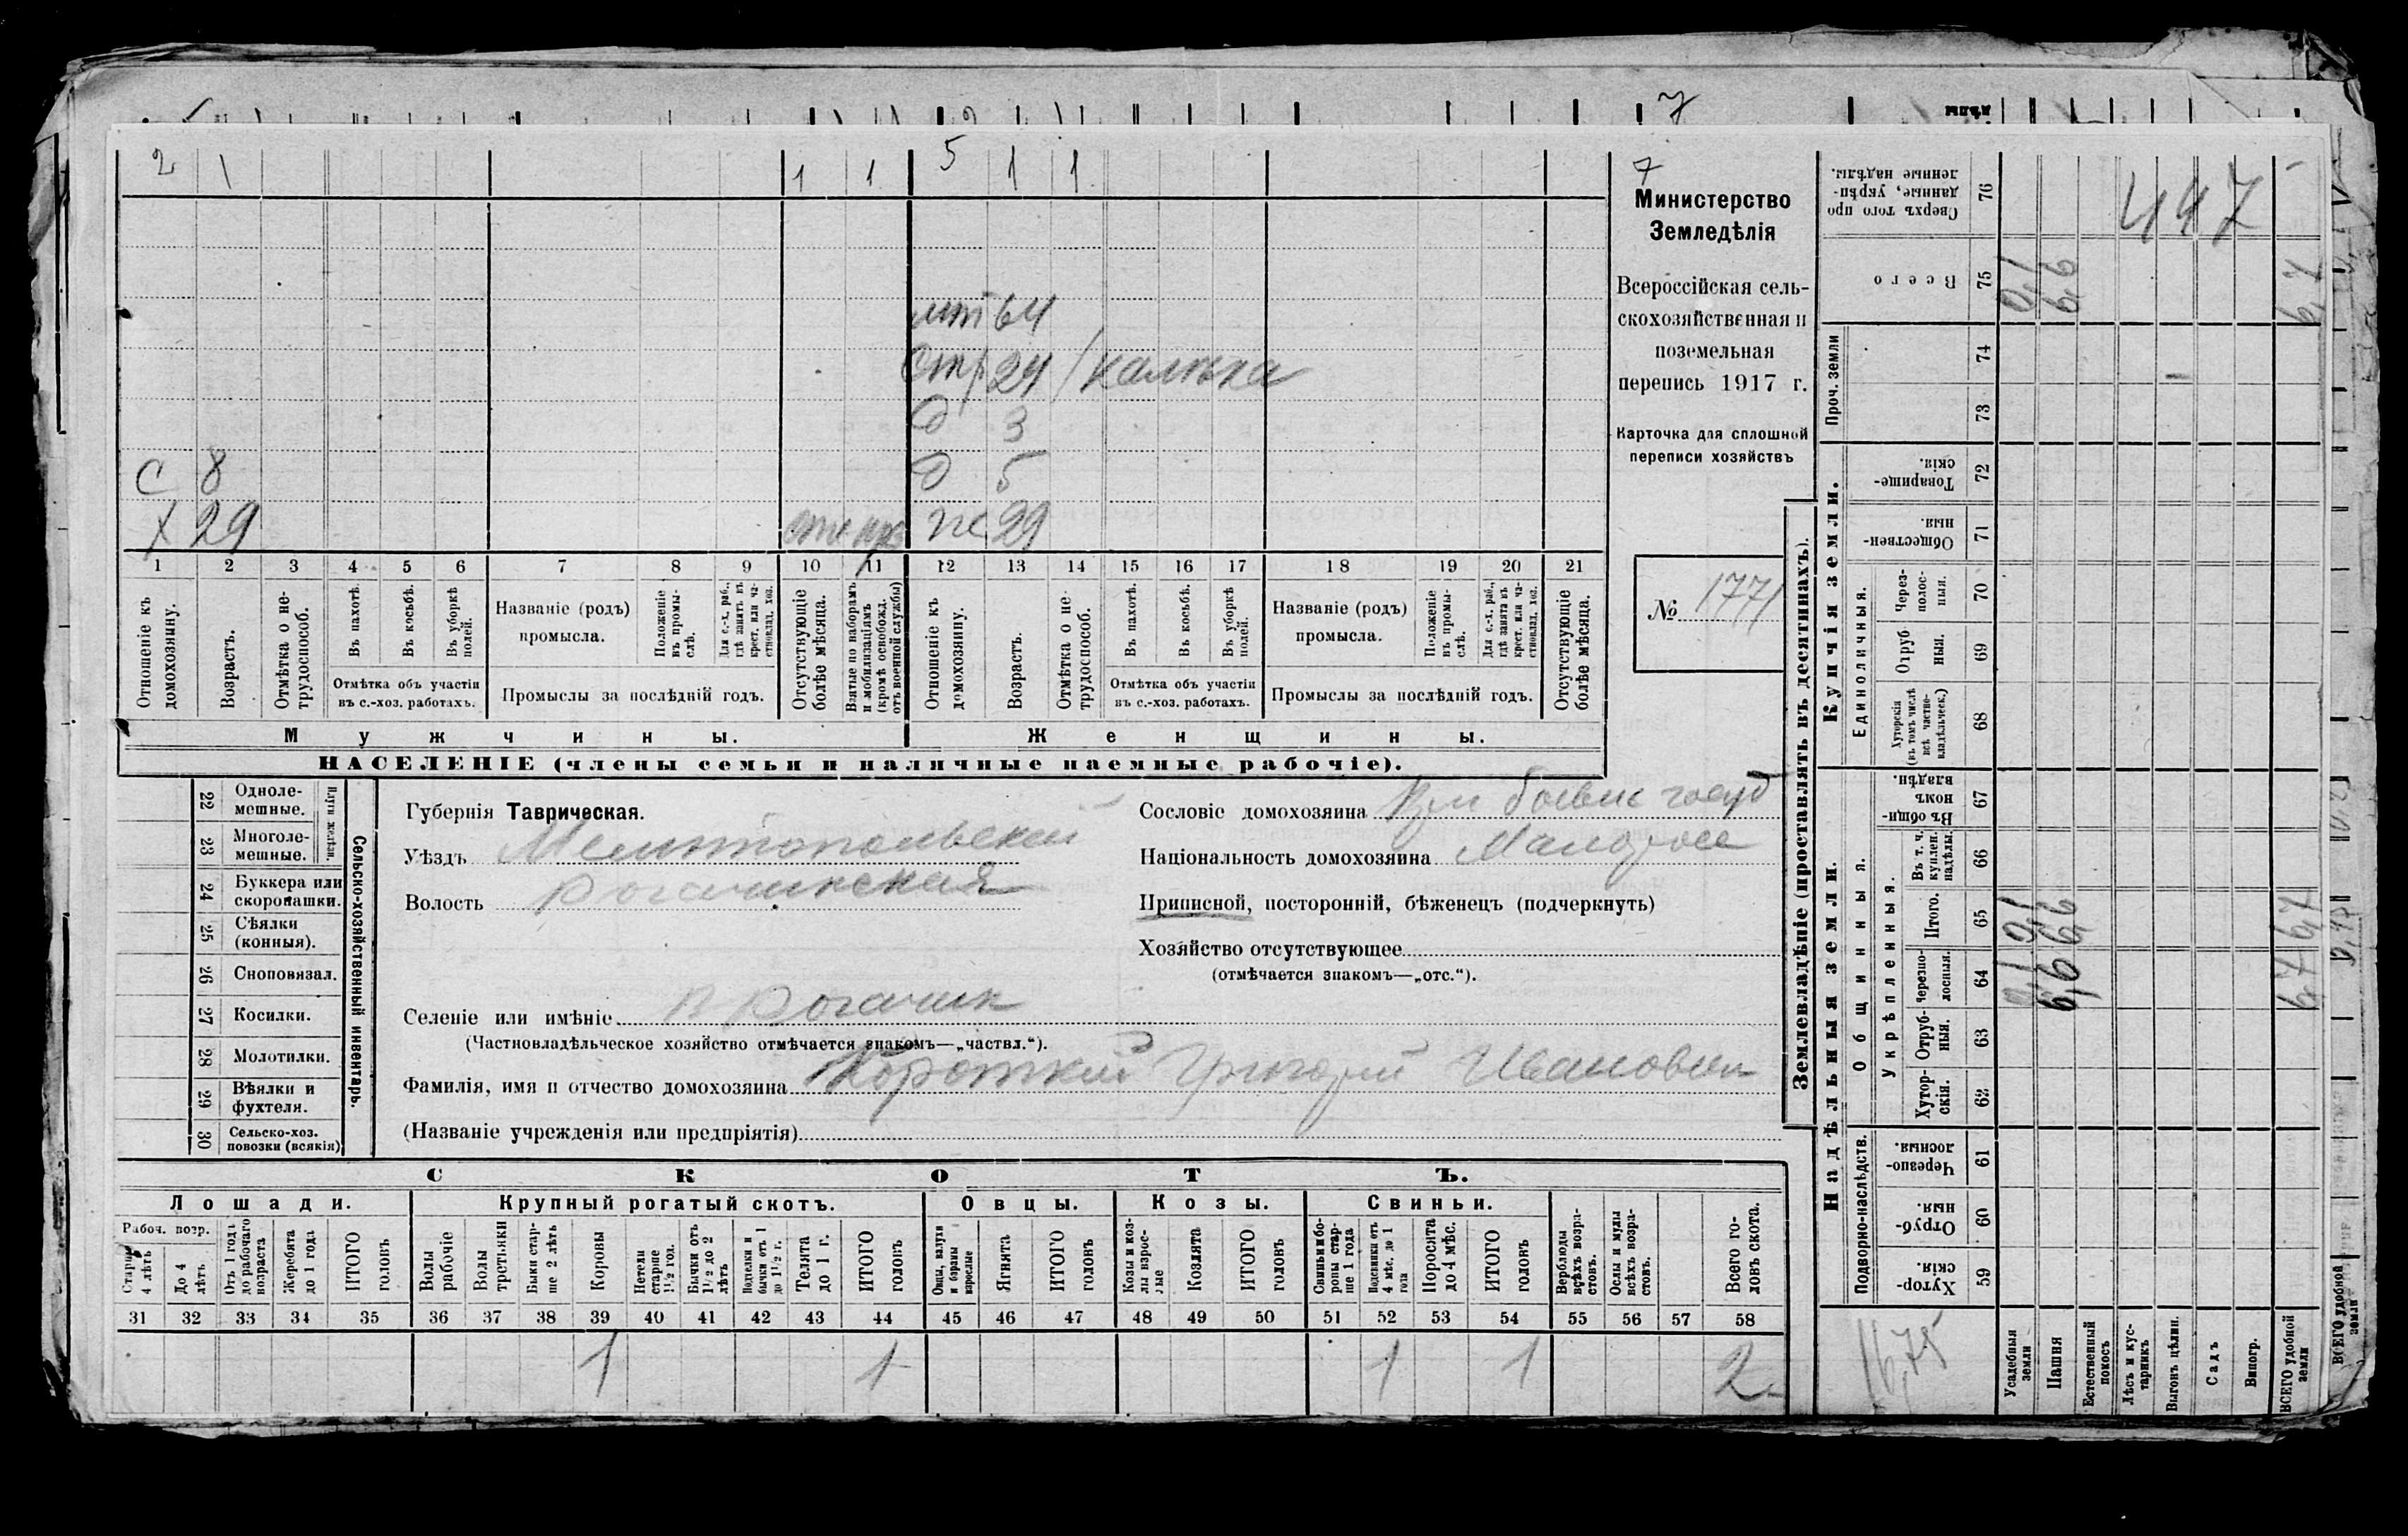 7
2 \ 1 1 5 1 1
мт 64
стр 24 / калѣка
д 3
С 8 д 5
Х 29 ж 29
1 2 3 4 5 6 7 8 9 10 11 12 13 14 15 16 17 18 19 20 21
Отношеніе къ домохозяину.
Возрастъ.
Отмѣтка о нетрудоспособ.
Въ пахотѣ.
Въ косьбѣ.
Въ уборкѣ полей.
Отмѣтка объ участіи въ с.-хоз. работахъ.
Названіе (родъ) промысла.
Положеніе въ промыслѣ.
Для с.-х. раб., гдѣ занятъ въ крест. или частновлад. хоз.
Промыслы за послѣдній годъ.
Отсутствующіе болѣе мѣсяца.
Взятые по наборамъ и мобилизаціямъ (кромѣ освобожд. отъ военной службы)
Отношеніе къ домохозяину.
Возрастъ.
Отмѣтка о нетрудоспособ.
Въ пахотѣ.
Въ косьбѣ.
Въ уборкѣ полей.
Отмѣтка объ участіи въ с.-хоз. работахъ.
Названіе (родъ) промысла.
Положеніе въ промыслѣ.
Для с.-х. раб., гдѣ занята въ крест. или частновлад. хоз.
Промыслы за послѣдній годъ.
Отсутствующіе болѣе мѣсяца.
Мужчины. Женщины.
НАСЕЛЕНІЕ (члены семьи и наличные наемные рабочіе).
7
Министерство
Земледѣлія
Всероссійская сель-
скохозяйственная и
поземельная
перепись 1917 г.
Карточка для сплошной
переписи хозяйствъ
№ 1771
22 Однолемешные.
23 Многолемешные.
Плуги желѣзн.
24 Буккера или скоропашки.
25 Сѣялки (конныя).
26 Сноповязал.
27 Косилки.
28 Молотилки.
29 Вѣялки и фухтеля.
30 Сельско-хоз. повозки (всякія)
Сельско-хозяйственный инвентарь.
Губернія Таврическая.
Уѣздъ Мелитопольскій
Волость Рогачикская
Селеніе или имѣніе В Рогачик
(Частновладѣльческое хозяйство отмѣчается знакомъ—„частвл.“).
Фамилія, имя и отчество домохозяина Короткій Григорій Иванович
(Названіе учрежденія или предпріятія)
Сословіе домохозяина
Національность домохозяина Малоросс
Приписной, посторонній, бѣженецъ (подчеркнуть)
Хозяйство отсутствующее
(отмѣчается знакомъ—„отс.“).
СКОТЪ.
Лошади. Крупный рогатый скотъ. Овцы. Козы. Свиньи.
Рабоч. возр.
Старше 4 лѣтъ
До 4 лѣтъ
Отъ 1 года до рабочаго возраста
Жеребята до 1 года
ИТОГО головъ
Волы рабочіе
Волы третьяки
Быки старше 2 лѣтъ
Коровы
Нетели старше 1½ год.
Бычки отъ 1½ до 2 лѣтъ
Подтелки и бычки отъ 1 до 1½ г.
Телята до 1 г.
ИТОГО головъ
Овцы, валухи и бараны взрослые
Ягнята
ИТОГО головъ
Козы и козлы взрослые
Козлята
ИТОГО головъ
Свиньи и боровы старше 1 года
Подсвинки отъ 4 мѣс. до 1 года
Поросята до 4 мѣс.
ИТОГО головъ
Верблюды всѣхъ возрастовъ.
Ослы и мулы всѣхъ возрастовъ.
Всего головъ скота.
31 32 33 34 35 36 37 38 39 40 41 42 43 44 45 46 47 48 49 50 51 52 53 54 55 56 57 58
1 1 1 1 2
Землевладѣніе (проставлять въ десятинахъ).
Надѣльныя земли. Купчія земли. Проч. земли
Подворно-наслѣдств. Общинныя. Единоличныя.
Укрѣпленныя.
59 Хуторскія
60 Отрубныя.
61 Черезполосныя.
62 Хуторскія.
63 Отрубныя.
64 Черезполосныя.
65 Итого.
66 Въ т. ч. куплен. надѣлы.
67 Въ общинномъ владѣн.
68 Хуторскія (въ томъ числѣ всѣ частновладѣльческ.)
69 Отрубныя.
70 Черезполосныя.
71 Общественныя.
72 Товарищескія.
73
74
75 Всего
76 Сверхъ того проданные, укрѣпленные надѣлы.
Усадебныя земли 0,1 0,1 0,1
Пашня 6,6 6,6 6,6
Естественный покосъ
Лѣсъ и кустарникъ
Выгонъ цѣлин.
Садъ
Виногр.
ВСЕГО удобной земли 6,7 6,7 6,7
447
16,75
ВСЕГО удобной земли